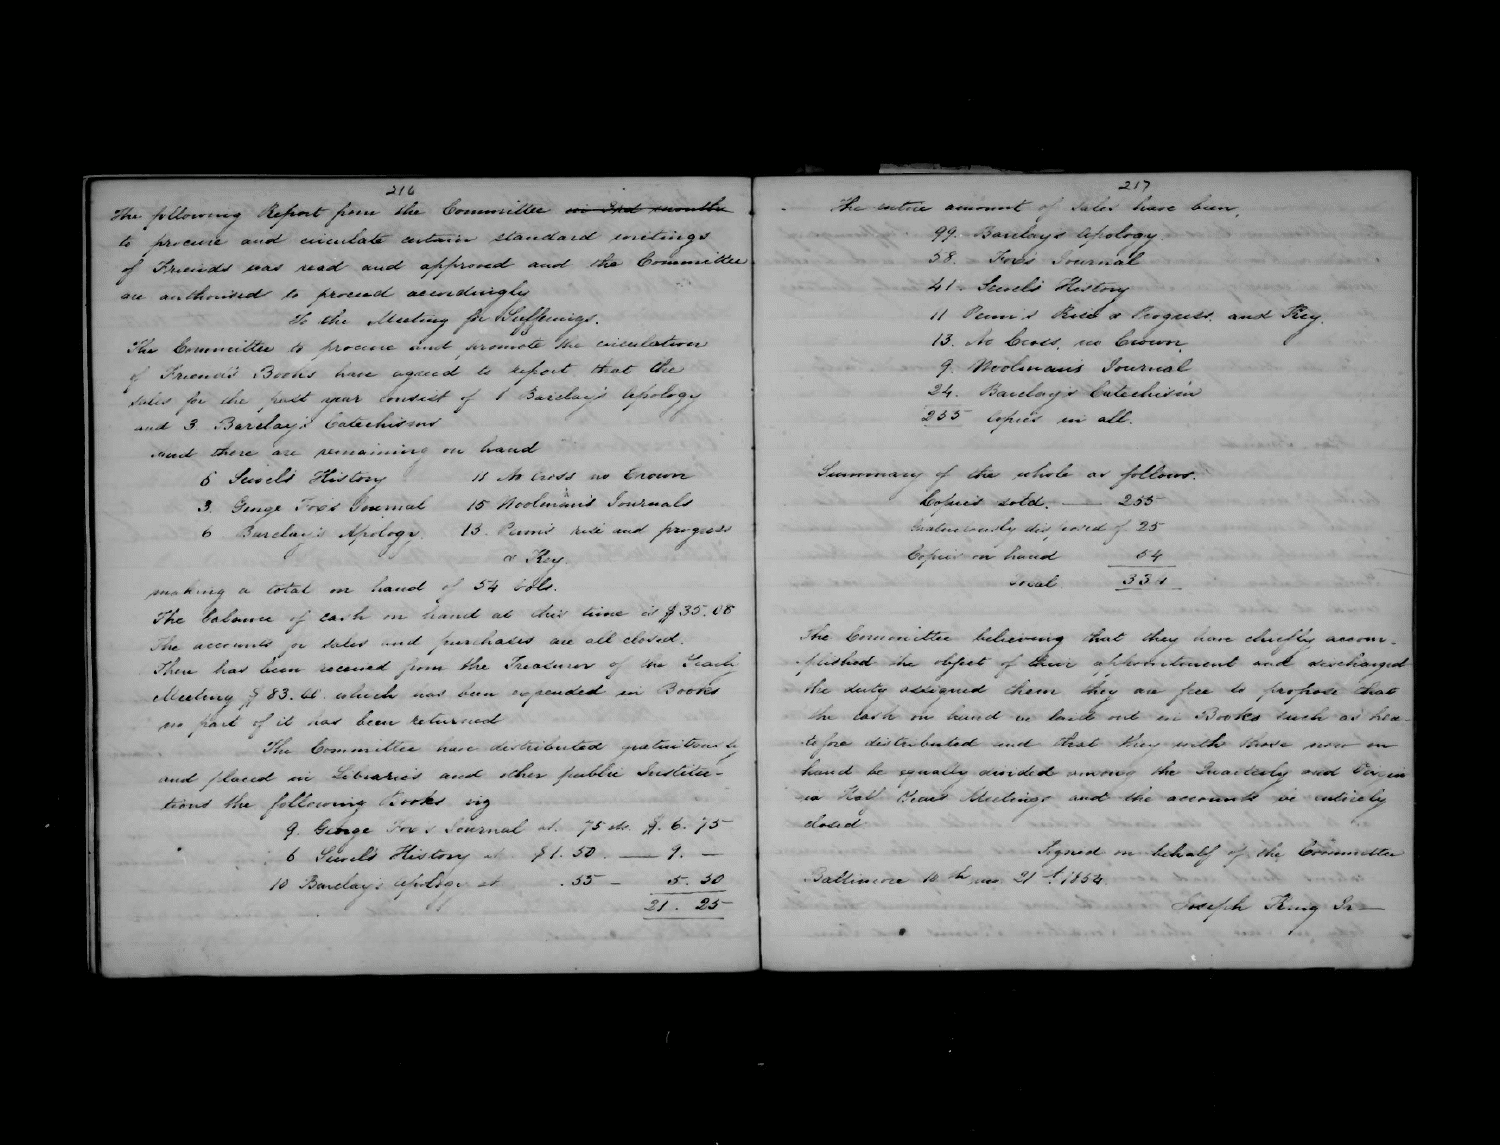 216
The following Report from the Committee on Ind months
to procure and circulate certain standard writings
of Friends was read and approved and the Committee
are authorised to proceed accordingly
To the Meeting for Sufferings.
The Committee to procure and promote the circulation
of Friend's Books have agreed to report that the
sales for the past year consist of 1 Barclay's Apology
and 3 Barclay's Catechisms
And there are remaining on hand
6 Sewel's History 11 No Cross no Crown
3 George Fox's Journal 15 Woolman's Journals
6 Barclay's Apology 13 Penn's rise and progress
& Key
making a total on hand of 54 Vols.
The balance of cash on hand at this time is $35.08
The accounts for sales and purchases are all closed.
There has been received from the Treasurer of the Yearly
Meeting $83.60 which has been expended in Books
no part of it has been returned
The Committee have distributed gratuitously
and placed in Libraries and other public Institu-
tions the following Books viz
9 George Fox's Journal at 75 cts $6.75
6 Sewel's History at $1.50 — 9. —
10 Barclay's Apology at .55 — 5.50
21.25
217
The entire amount of sales have been,
99. Barclay's Apology.
58. Fox's Journal
41. Sewel's History
11 Penn's Rise & Progress. and Key.
13. No Cross, no Crown.
9. Woolman's Journal
24. Barclay's Catechism
255 Copies in all.
Summary of the whole as follows.
Copies sold. — 255
Gratuitously disposed of 25
Copies on hand 54
Total 334
The Committee believing that they have chiefly accom-
plished the object of their appointment and discharged
the duty assigned them they are free to propose that
the cash on hand be laid out in Books such as here-
tofore distributed and that they with those now on
hand be equally divided among the Quarterly and Virgin
ia Half Years Meetings and the accounts be entirely
closed
Signed on behalf of the Committee
Baltimore 10th mo 21st 1854.
Joseph King Jr